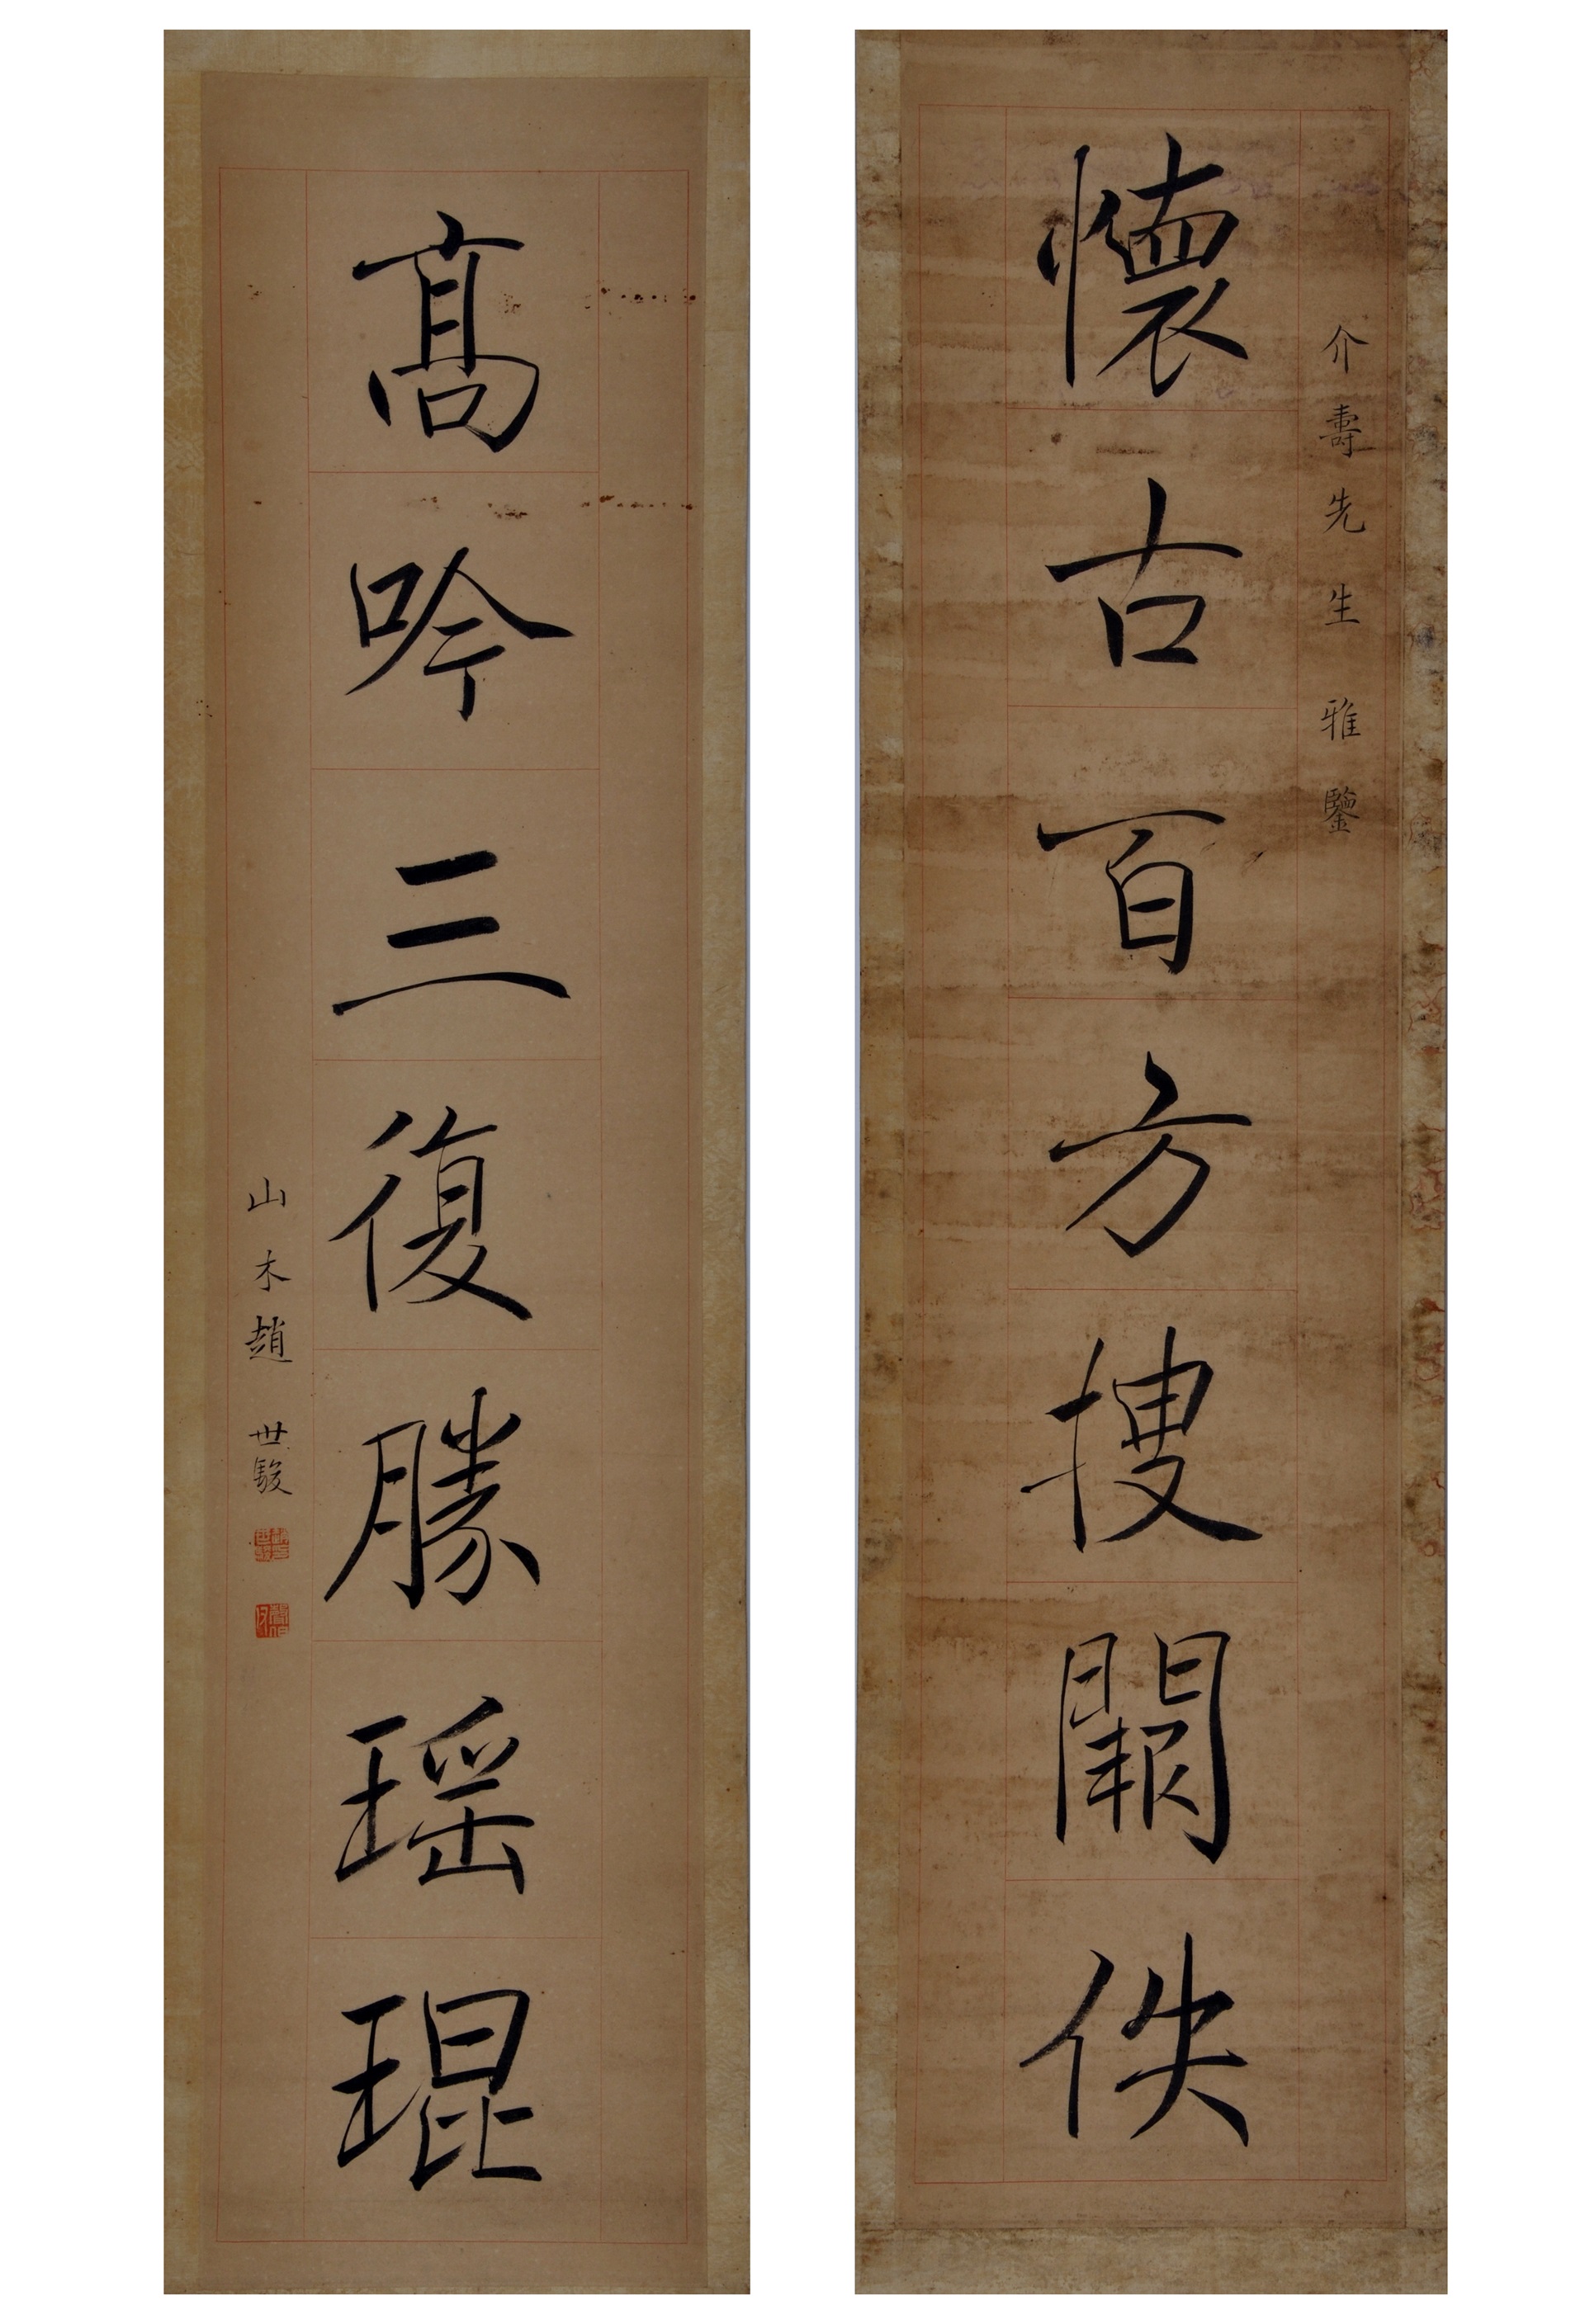 介壽先生雅鑒
懷古百方搜闕佚
髙吟三復勝瑶琨
山木趙世駿